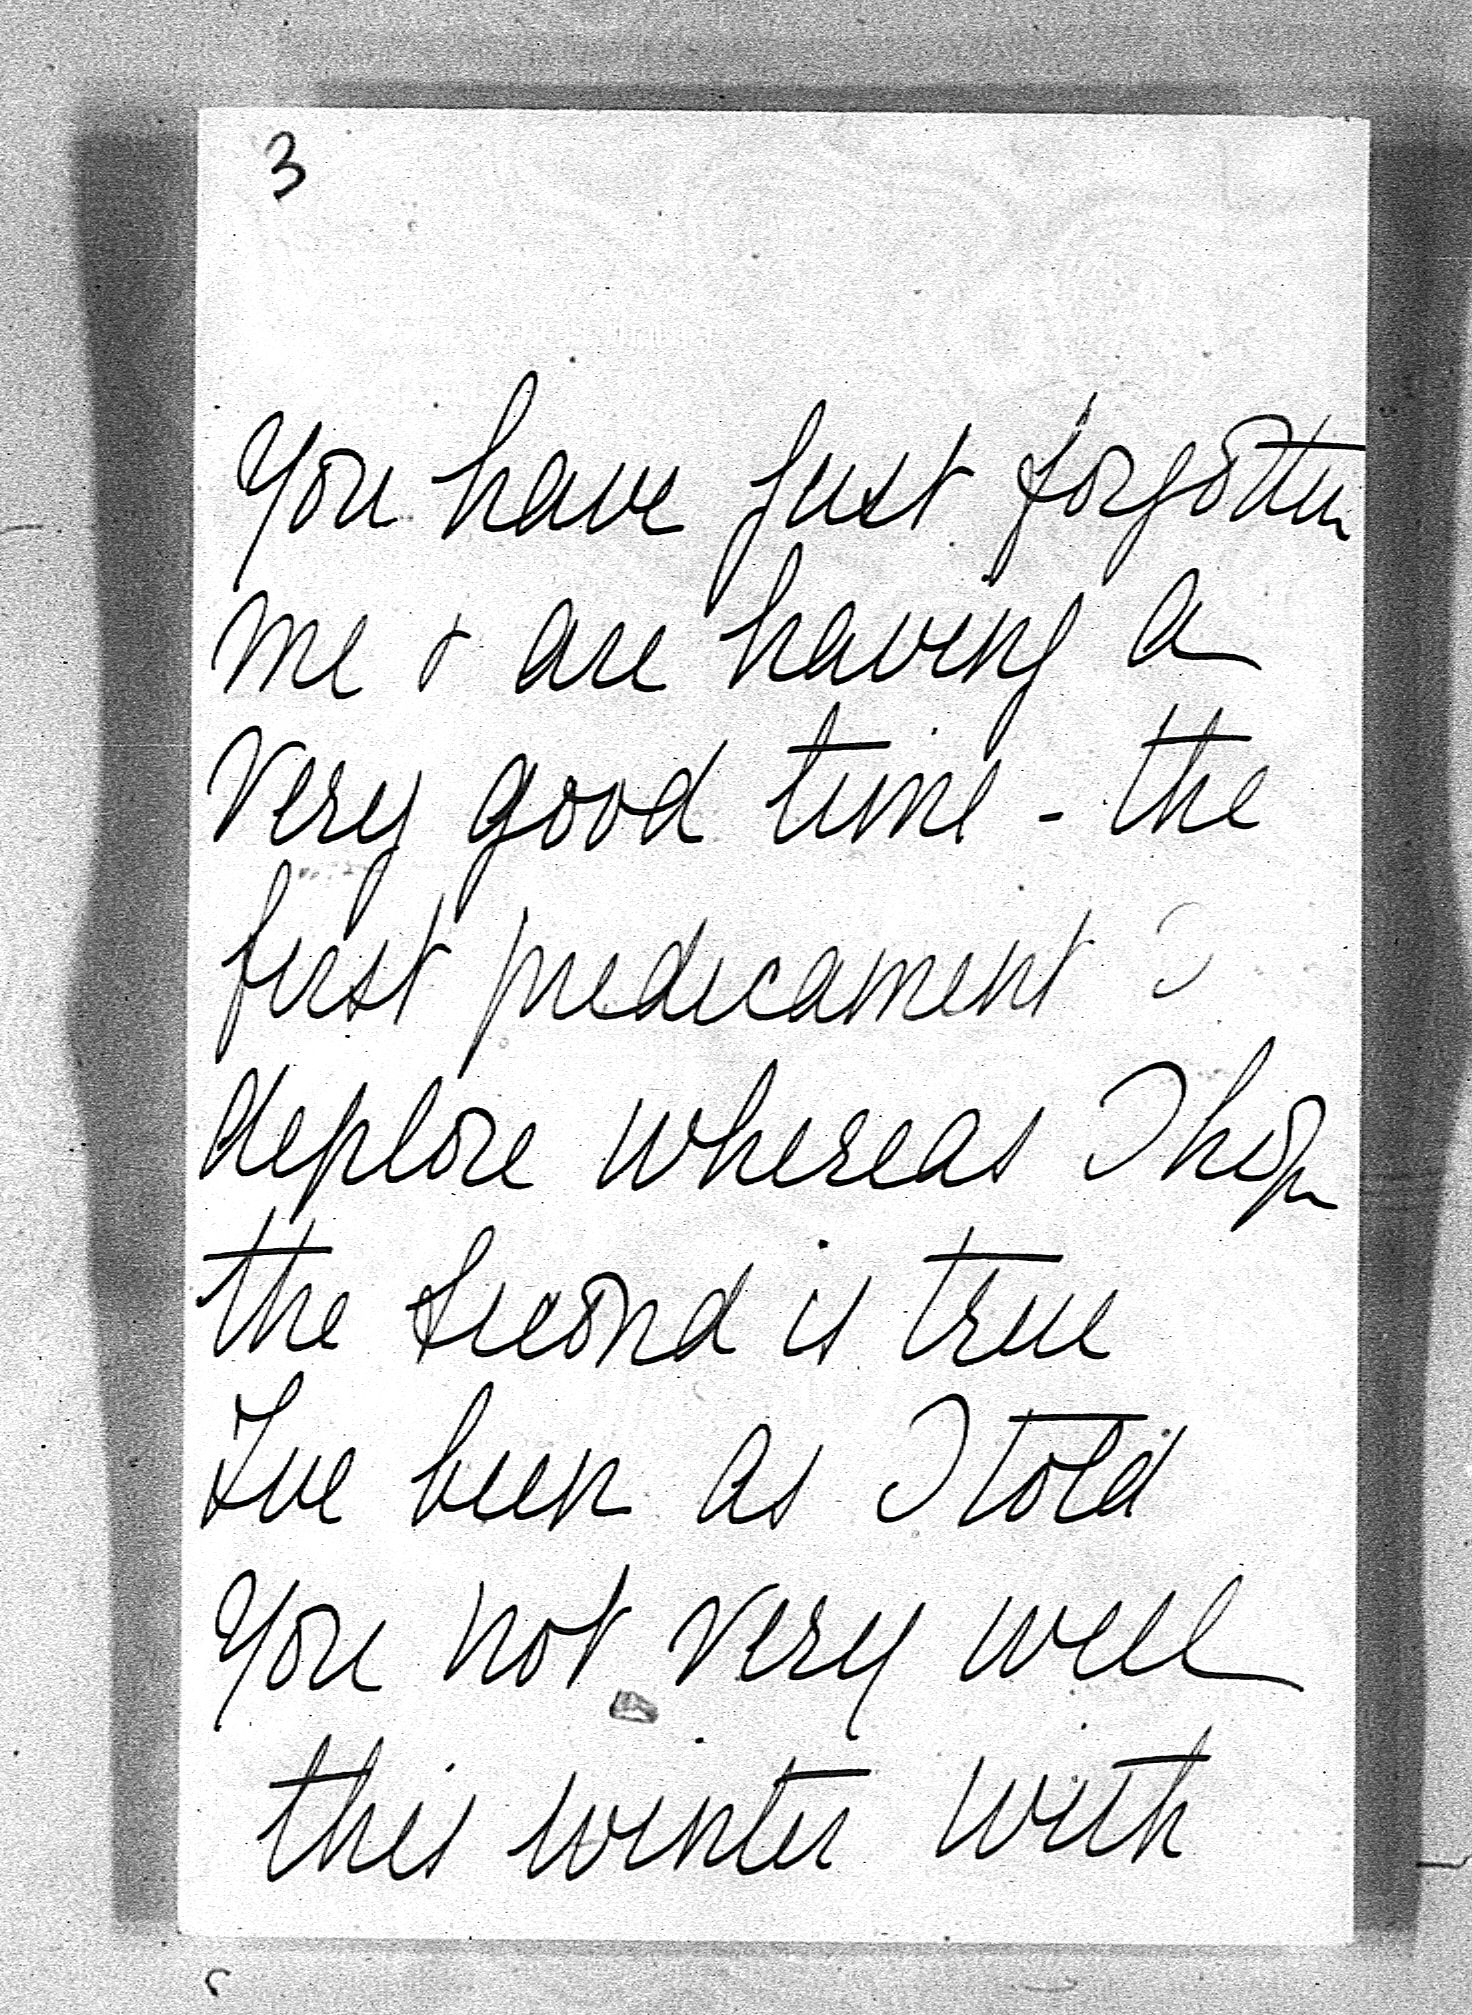 3
You have just forgotten
me & are having a
very good time - the
first predicament I
deplore whereas I hope
the second is true
I've been as I told
you not very well
this winter with